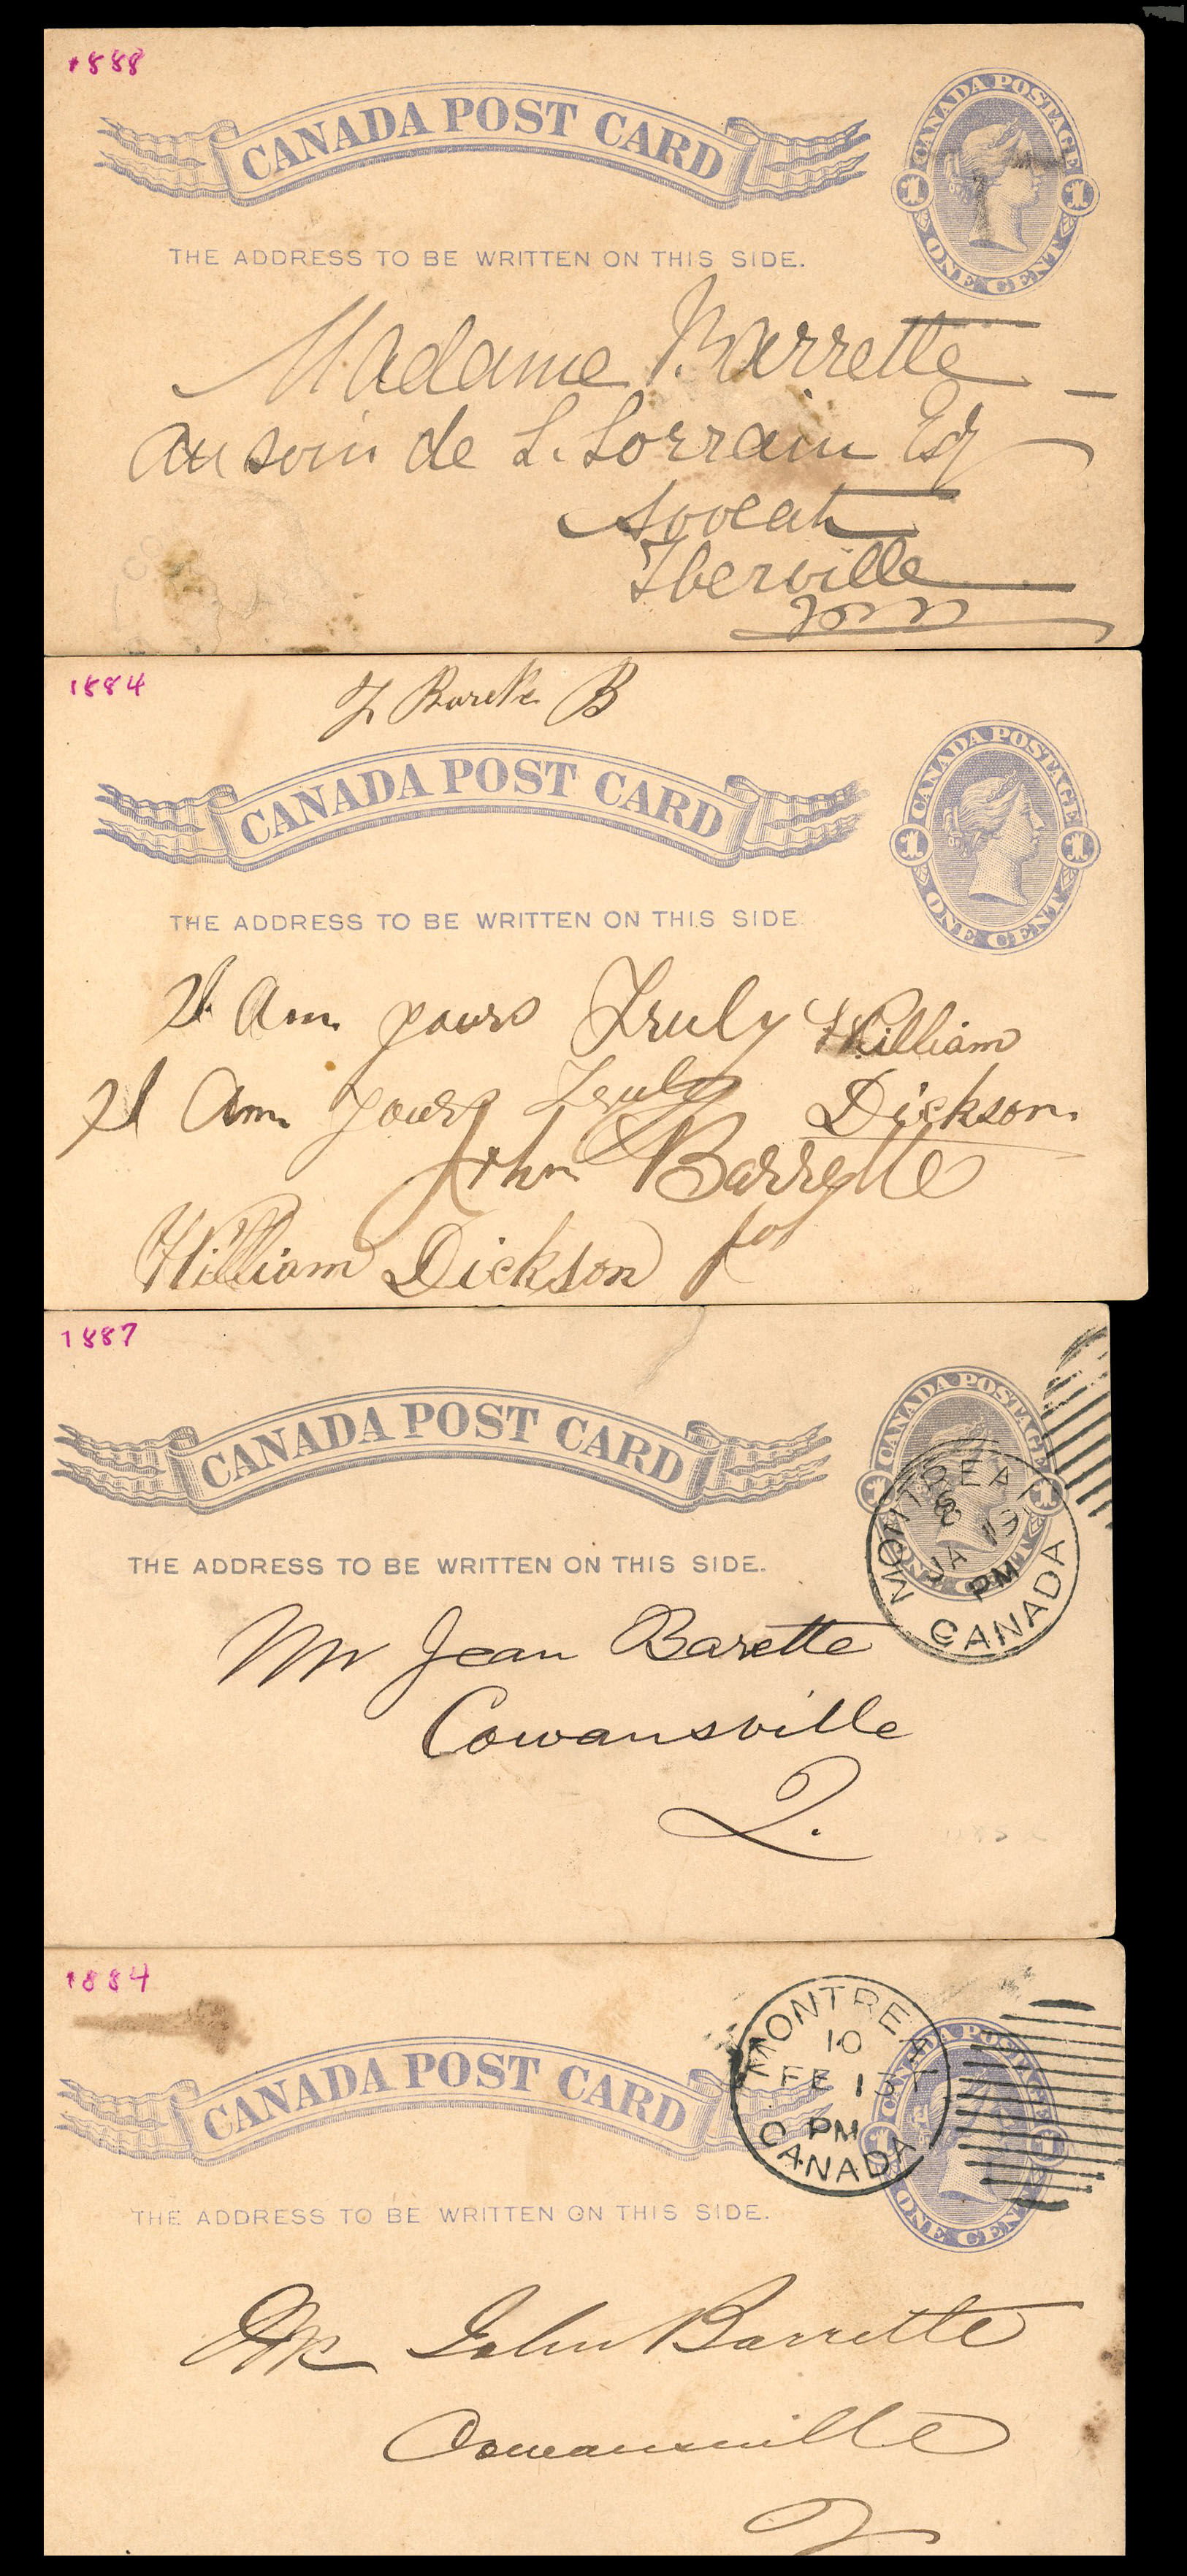 1888
CANADA POST CARD
CANADA POSTAGE
1 1
ONE CENT
THE ADDRESS TO BE WRITTEN ON THIS SIDE.
Madame Barrette
au soin de L. Lorrain Esq
Avocat
Iberville
1884
B
CANADA POST CARD
CANADA POSTAGE
1 1
ONE CENT
THE ADDRESS TO BE WRITTEN ON THIS SIDE
I Am yours Truly William
I Am yours Truly Dickson.
John Barrette
William Dickson for
1887
CANADA POST CARD
CANADA POSTAGE
1 1
ONE CENT
MONTREAL
8
JA 13
PM
CANADA
THE ADDRESS TO BE WRITTEN ON THIS SIDE.
Mr Jean Barette
Cowansville
Q.
1884
CANADA POST CARD
CANADA POSTAGE
1 1
ONE CENT
MONTREAL
10
FE 13
PM
CANADA
THE ADDRESS TO BE WRITTEN ON THIS SIDE.
Mr John Barrette
Cowansville
Q